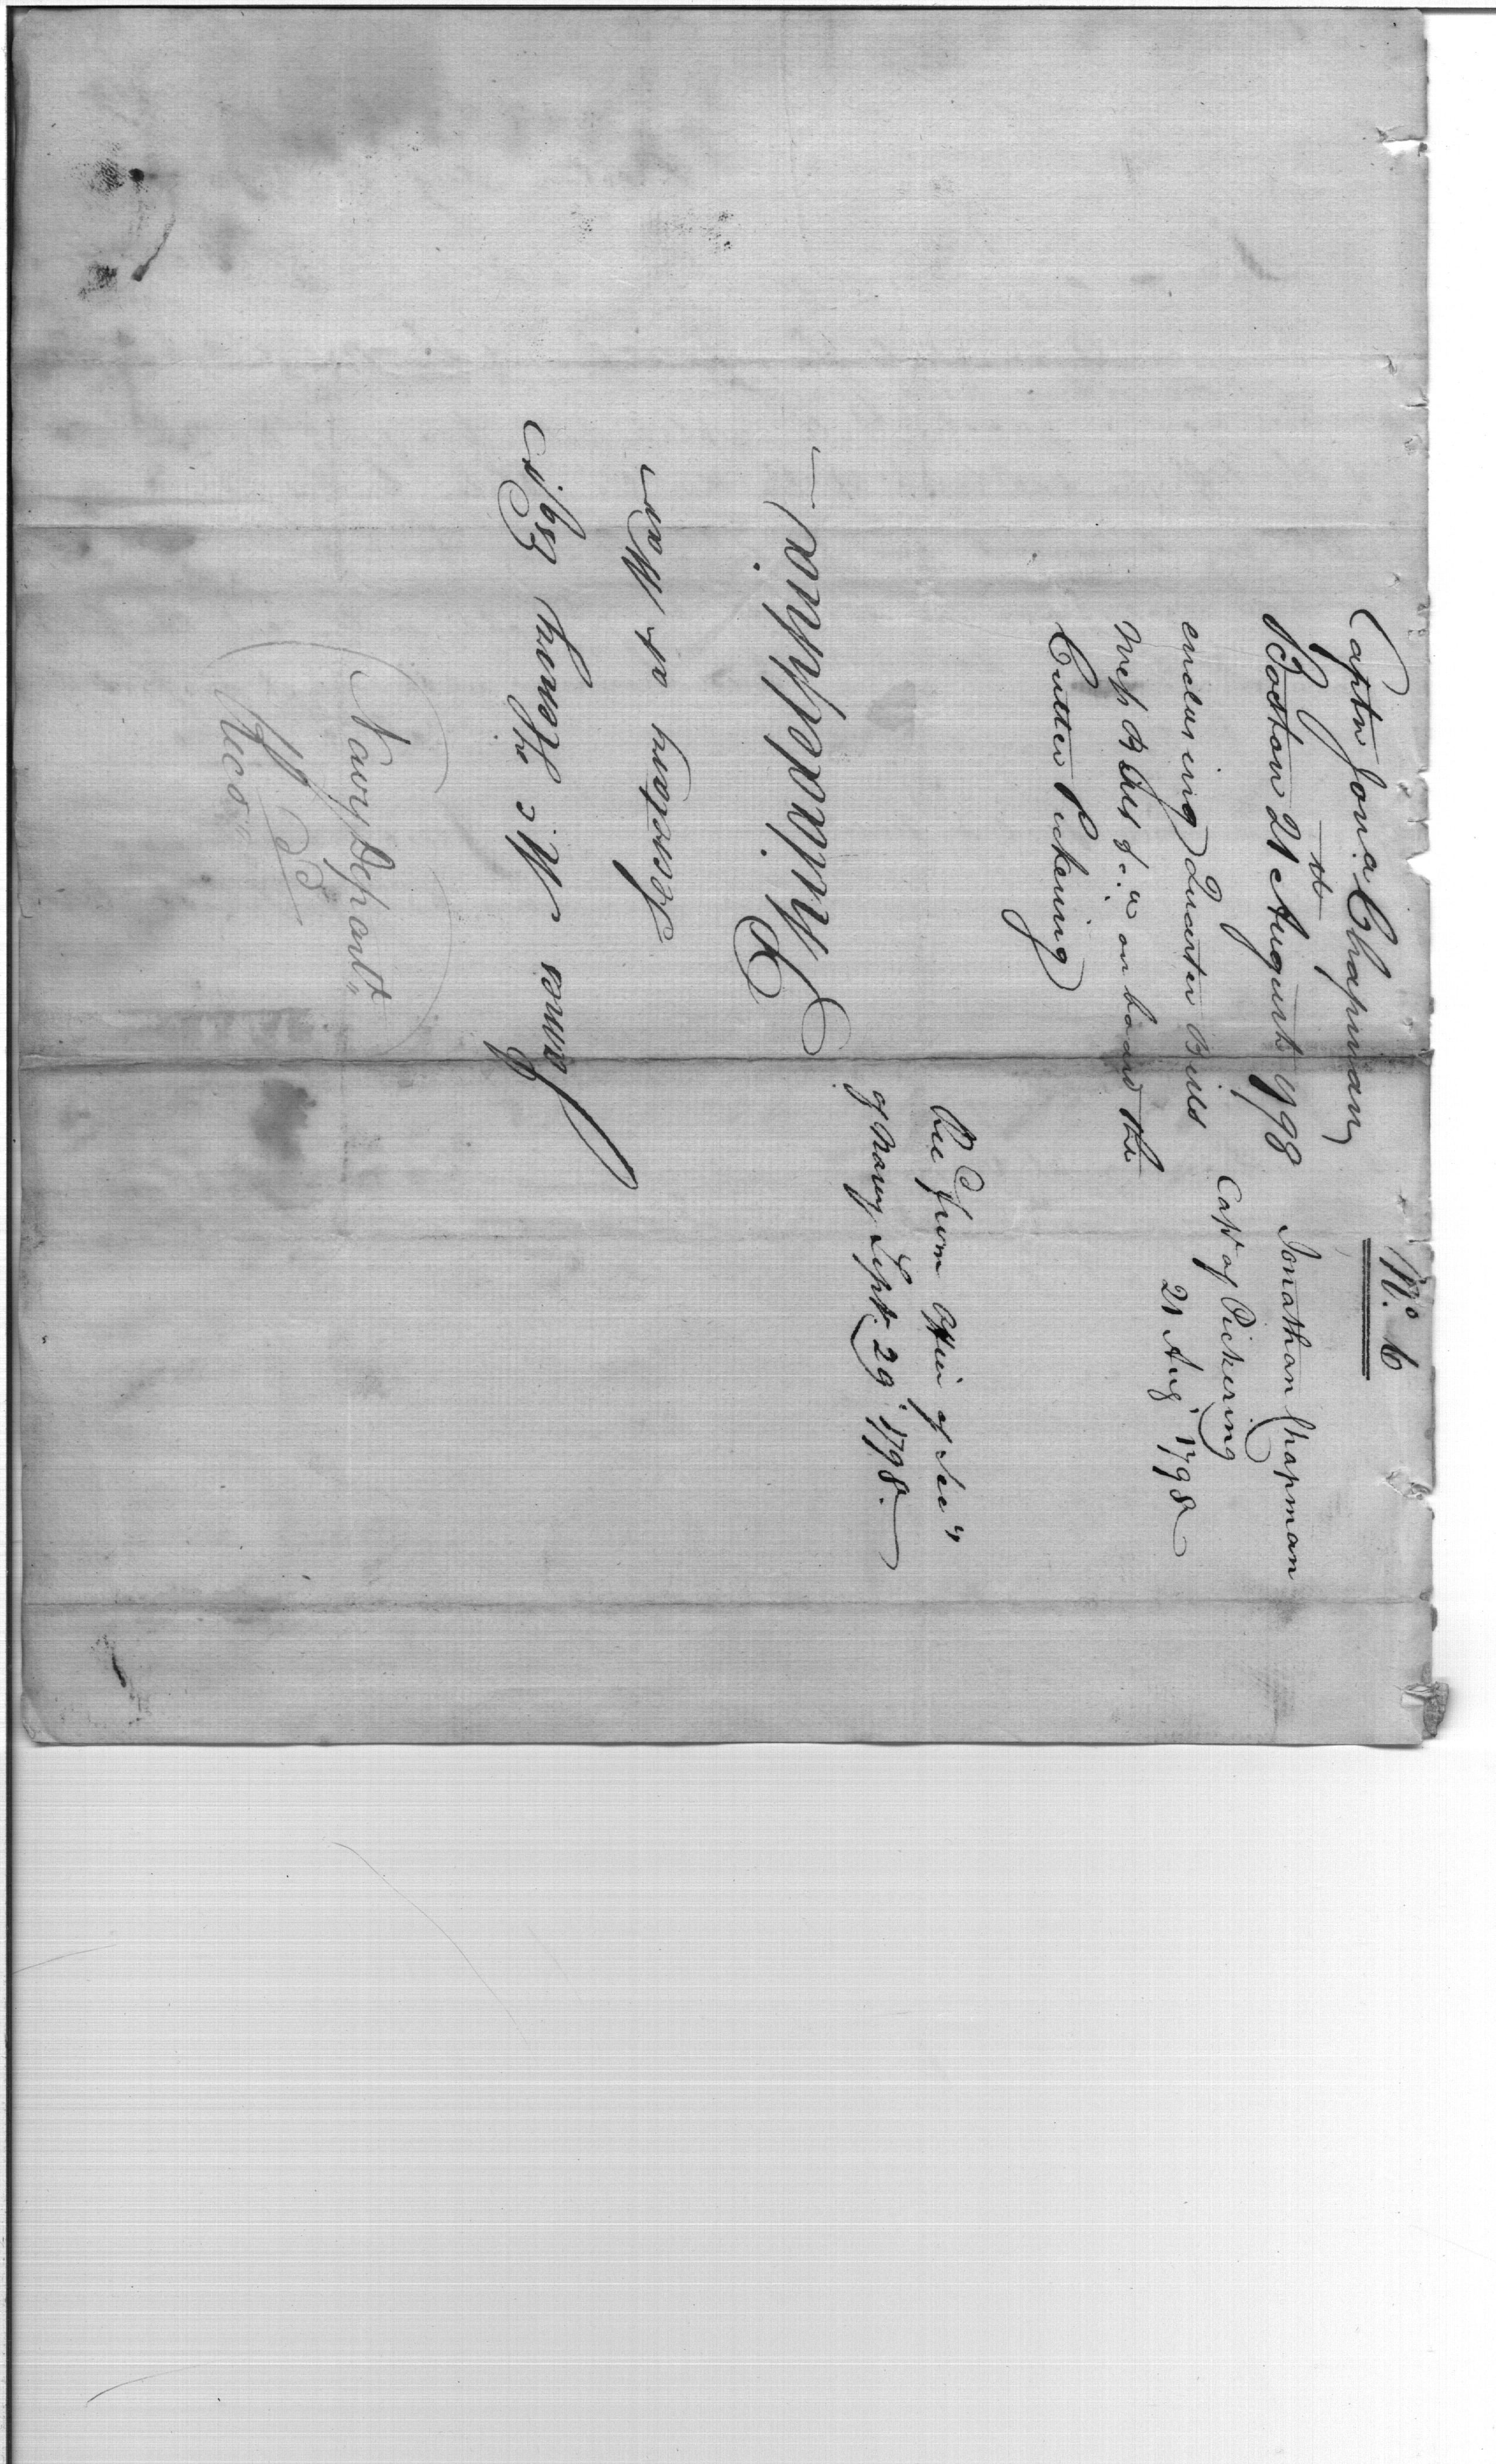 Nº. 6
Captn Jona. Chapman
Boston 21st August 1798
enclosing Quarter Bills
Mess Bills &ca on board the
Cutter Pickering
Jonathan Chapman
Capt of Pickering
21 Aug. 1798
Recd from Office of Secy
of Navy Sept. 29. 1798.
James McHenry Esqr.
Secretary at War
Philadelphia.
Navy Depart.